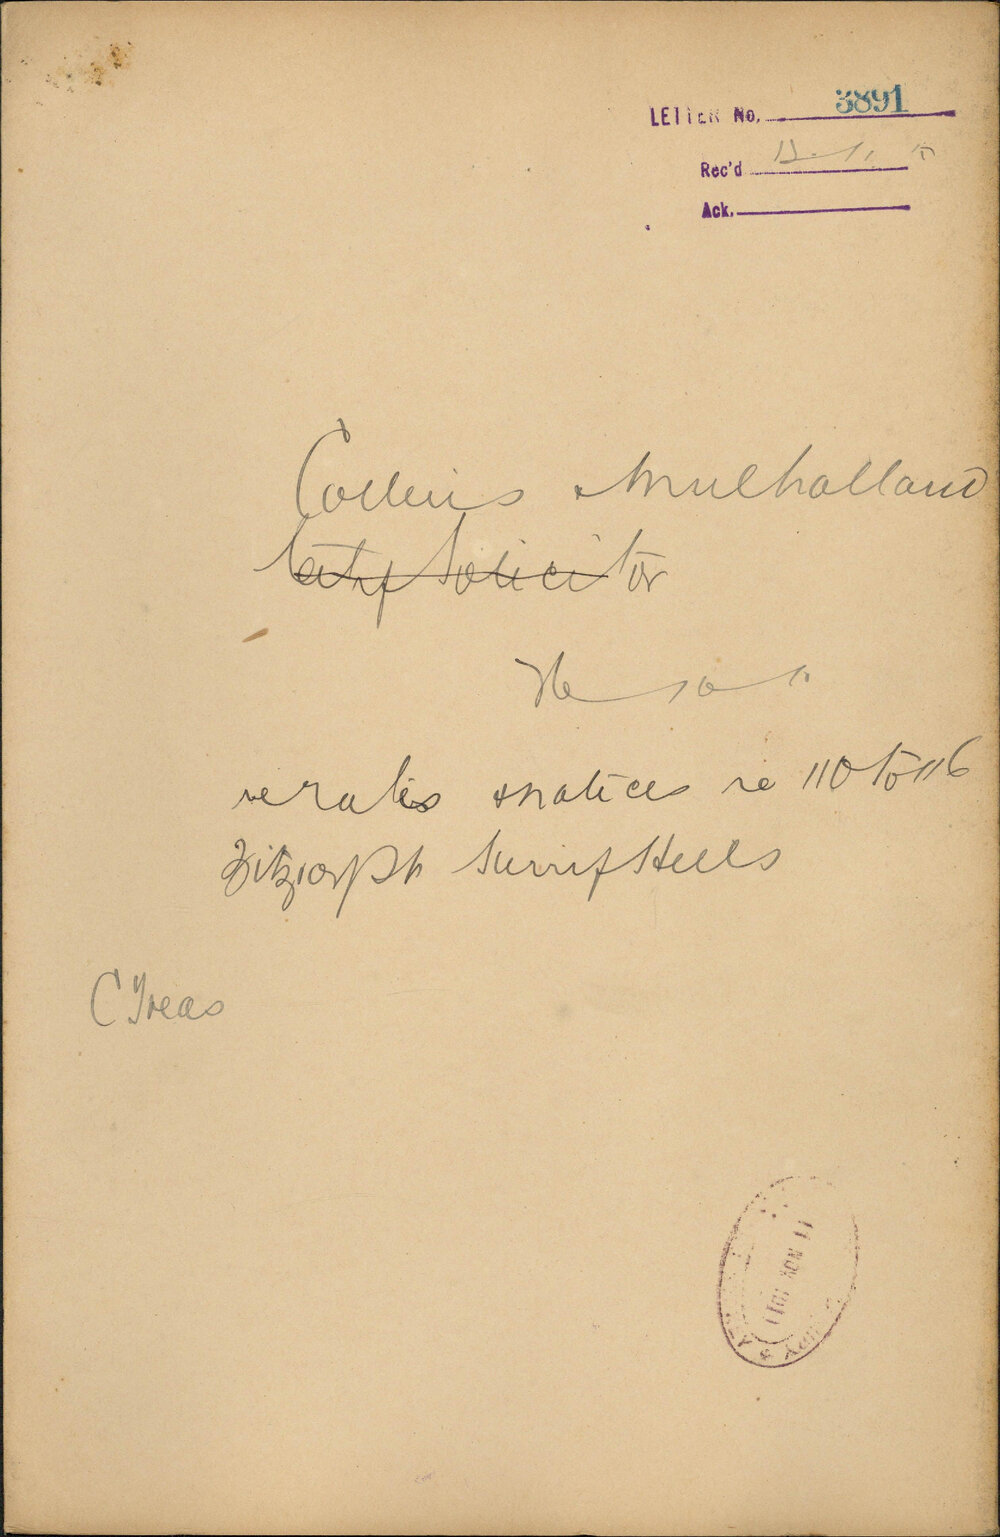 LETTER No. 3891
Rec'd 11
Ack.
Collins & Mulholland
City Solicitor
re rates & notices re 110 to 116
Fitzroy St Surry Hills
C Treas
11 NOV 1911